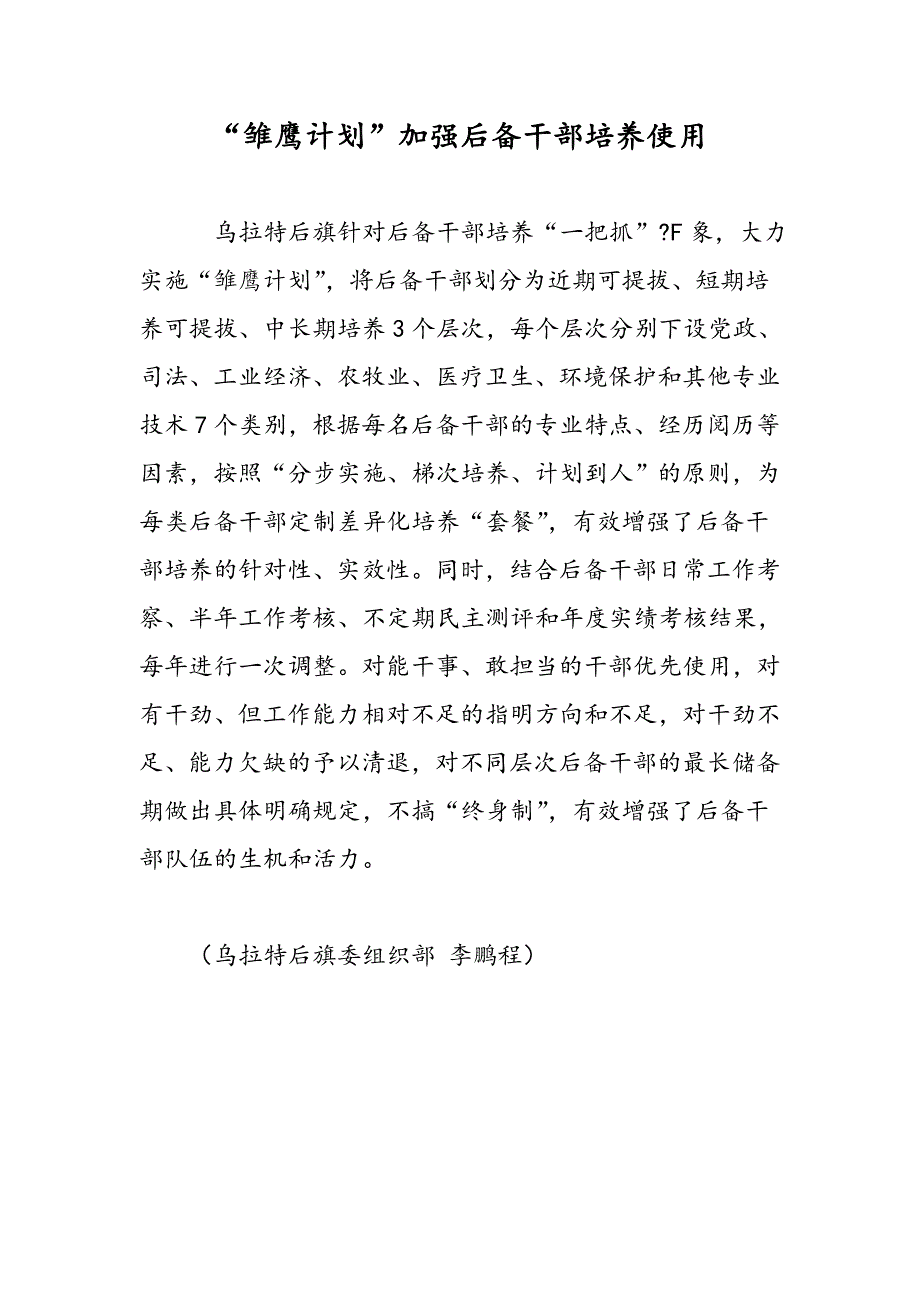 “雏鹰计划”加强后备干部培养使用
乌拉特后旗针对后备干部培养“一把抓”?F 象，大力
实施“雏鹰计划”，将后备干部划分为近期可提拔、短期培
养可提拔、中长期培养 3 个层次，每个层次分别下设党政、
司法、工业经济、农牧业、医疗卫生、环境保护和其他专业
技术 7 个类别，根据每名后备干部的专业特点、经历阅历等
因素，按照“分步实施、梯次培养、计划到人”的原则，为
每类后备干部定制差异化培养“套餐”，有效增强了后备干
部培养的针对性、实效性。同时，结合后备干部日常工作考
察、半年工作考核、不定期民主测评和年度实绩考核结果，
每年进行一次调整。对能干事、敢担当的干部优先使用，对
有干劲、但工作能力相对不足的指明方向和不足，对干劲不
足、能力欠缺的予以清退，对不同层次后备干部的最长储备
期做出具体明确规定，不搞“终身制”，有效增强了后备干
部队伍的生机和活力。
（乌拉特后旗委组织部 李鹏程）